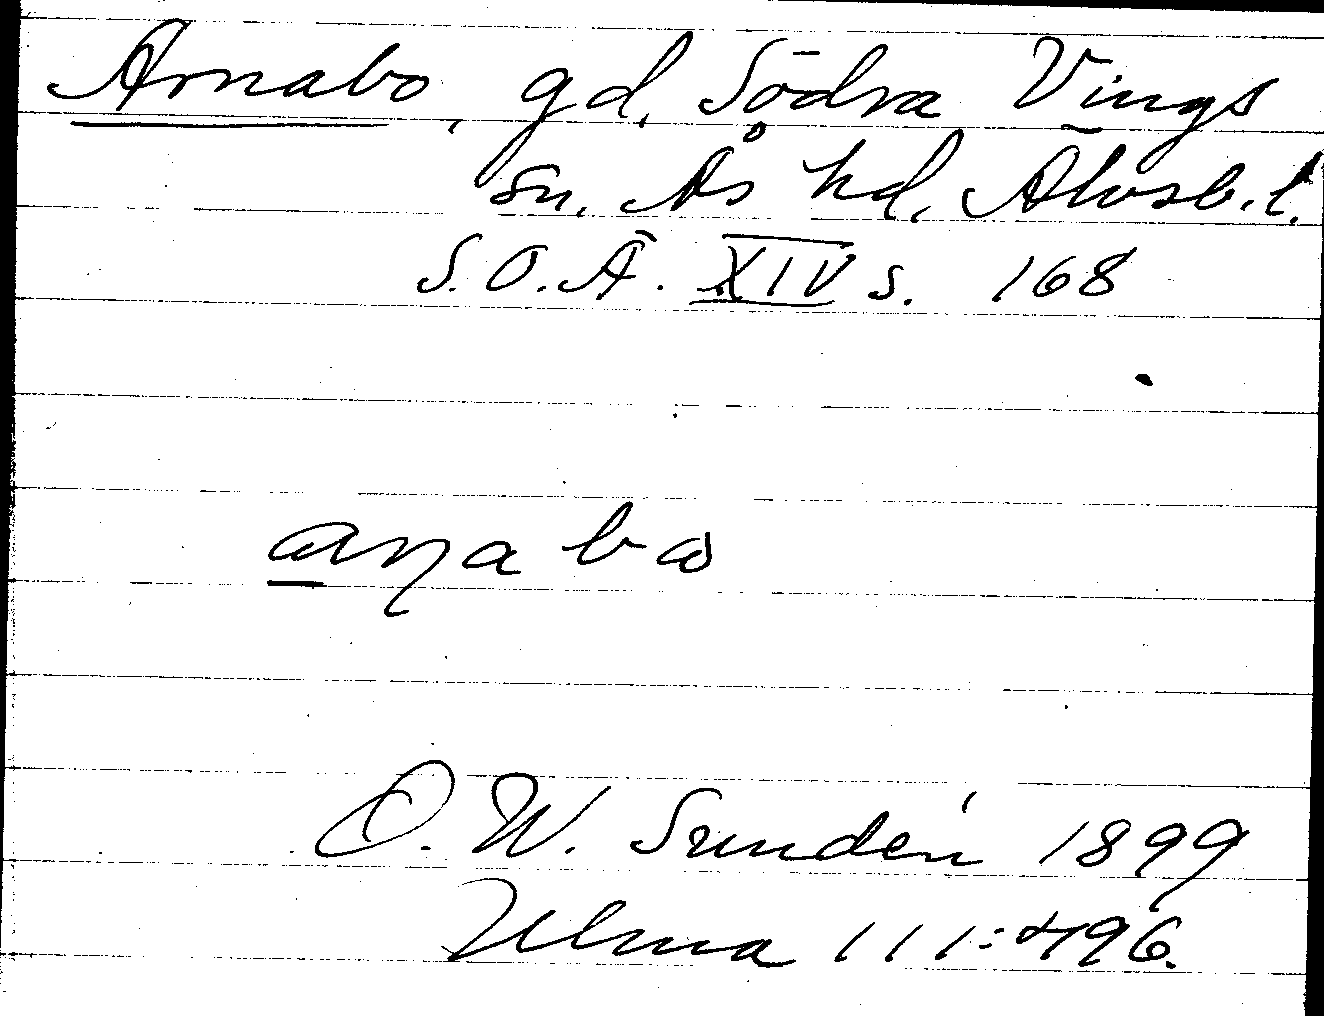 Arnabo, gd, Södra Vings
sn. Ås hd. Älvsb. l.
S.O.Ä. XIV s. 168
aɳabɷ
O. W. Sundén 1899
Ulma 111:496.